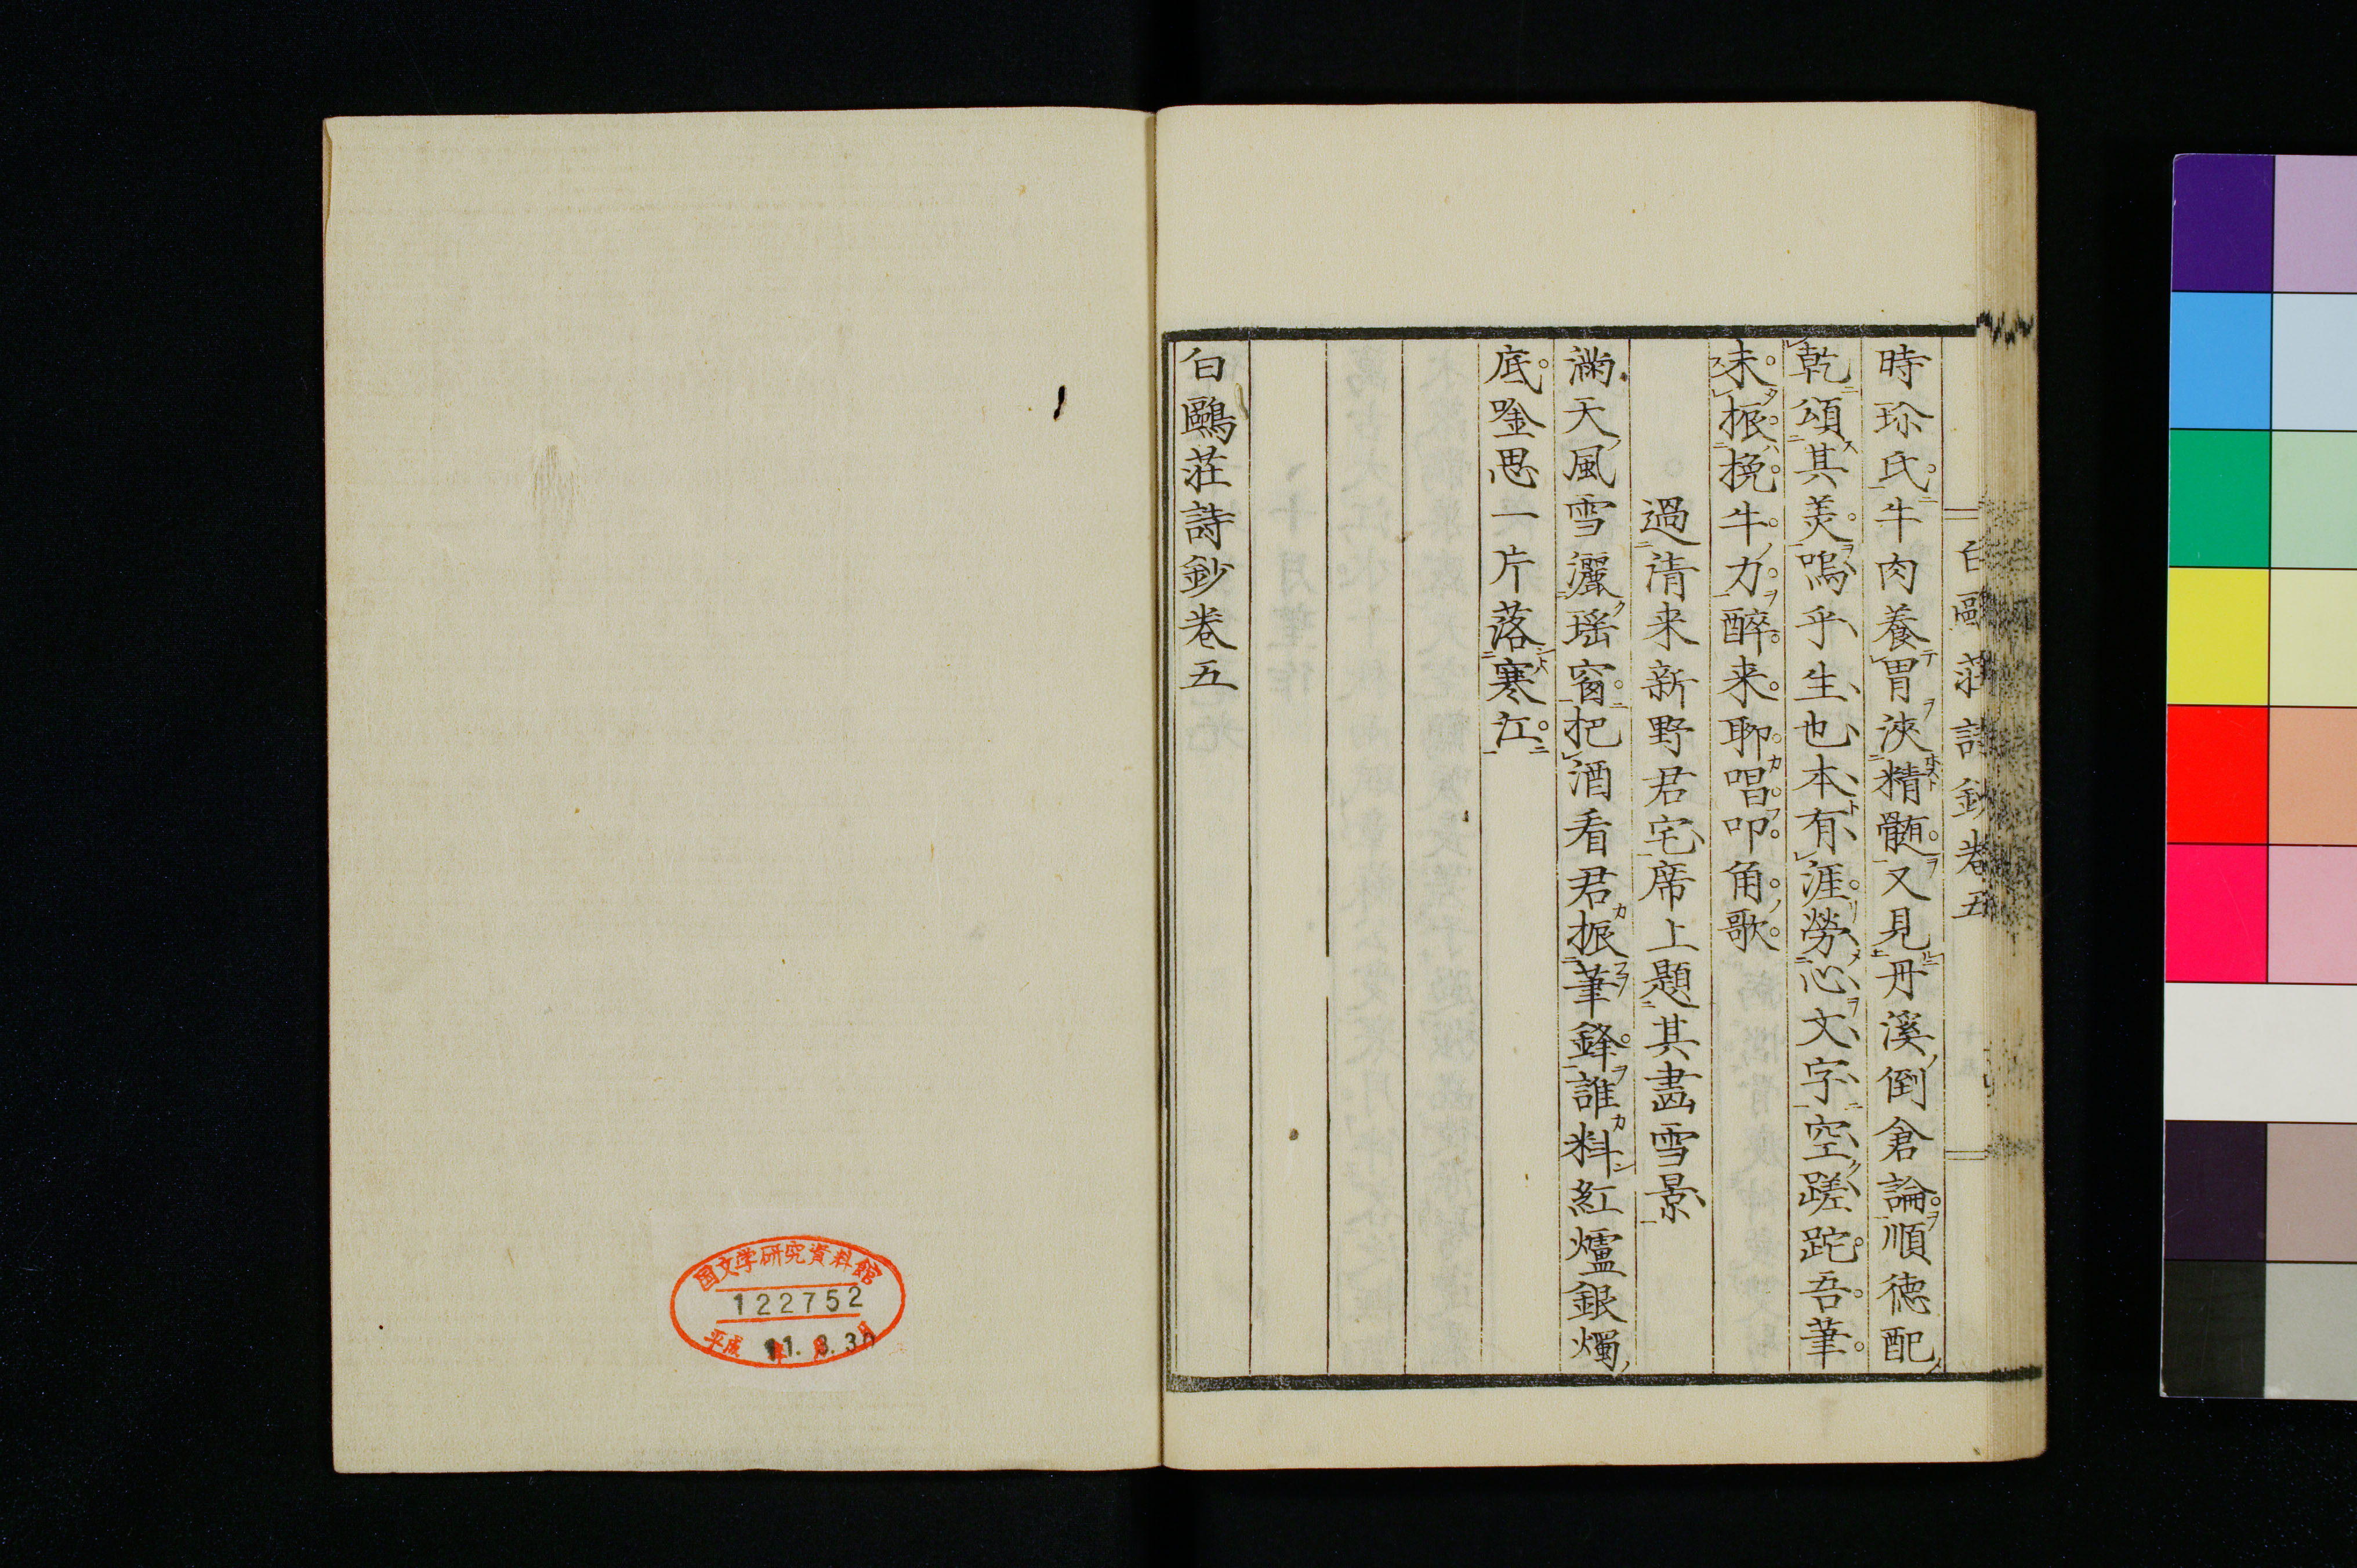 白鷗莊詩鈔卷五
時珍氏牛肉養胃浹精髄又見丹溪倒倉論順徳配
乾頌其美嗚乎生也本有涯勞心文字空蹉跎吾筆
未振挽牛力醉来聊唱叩角歌
過清来新野君宅席上題其畵雪景
滿天風雪灑瑶窗把酒看君振筆鋒誰料紅爐銀燭
底唫思一片落寒江
白鷗莊詩鈔卷五
国文学研究資料館
122752
平成 11.3.30